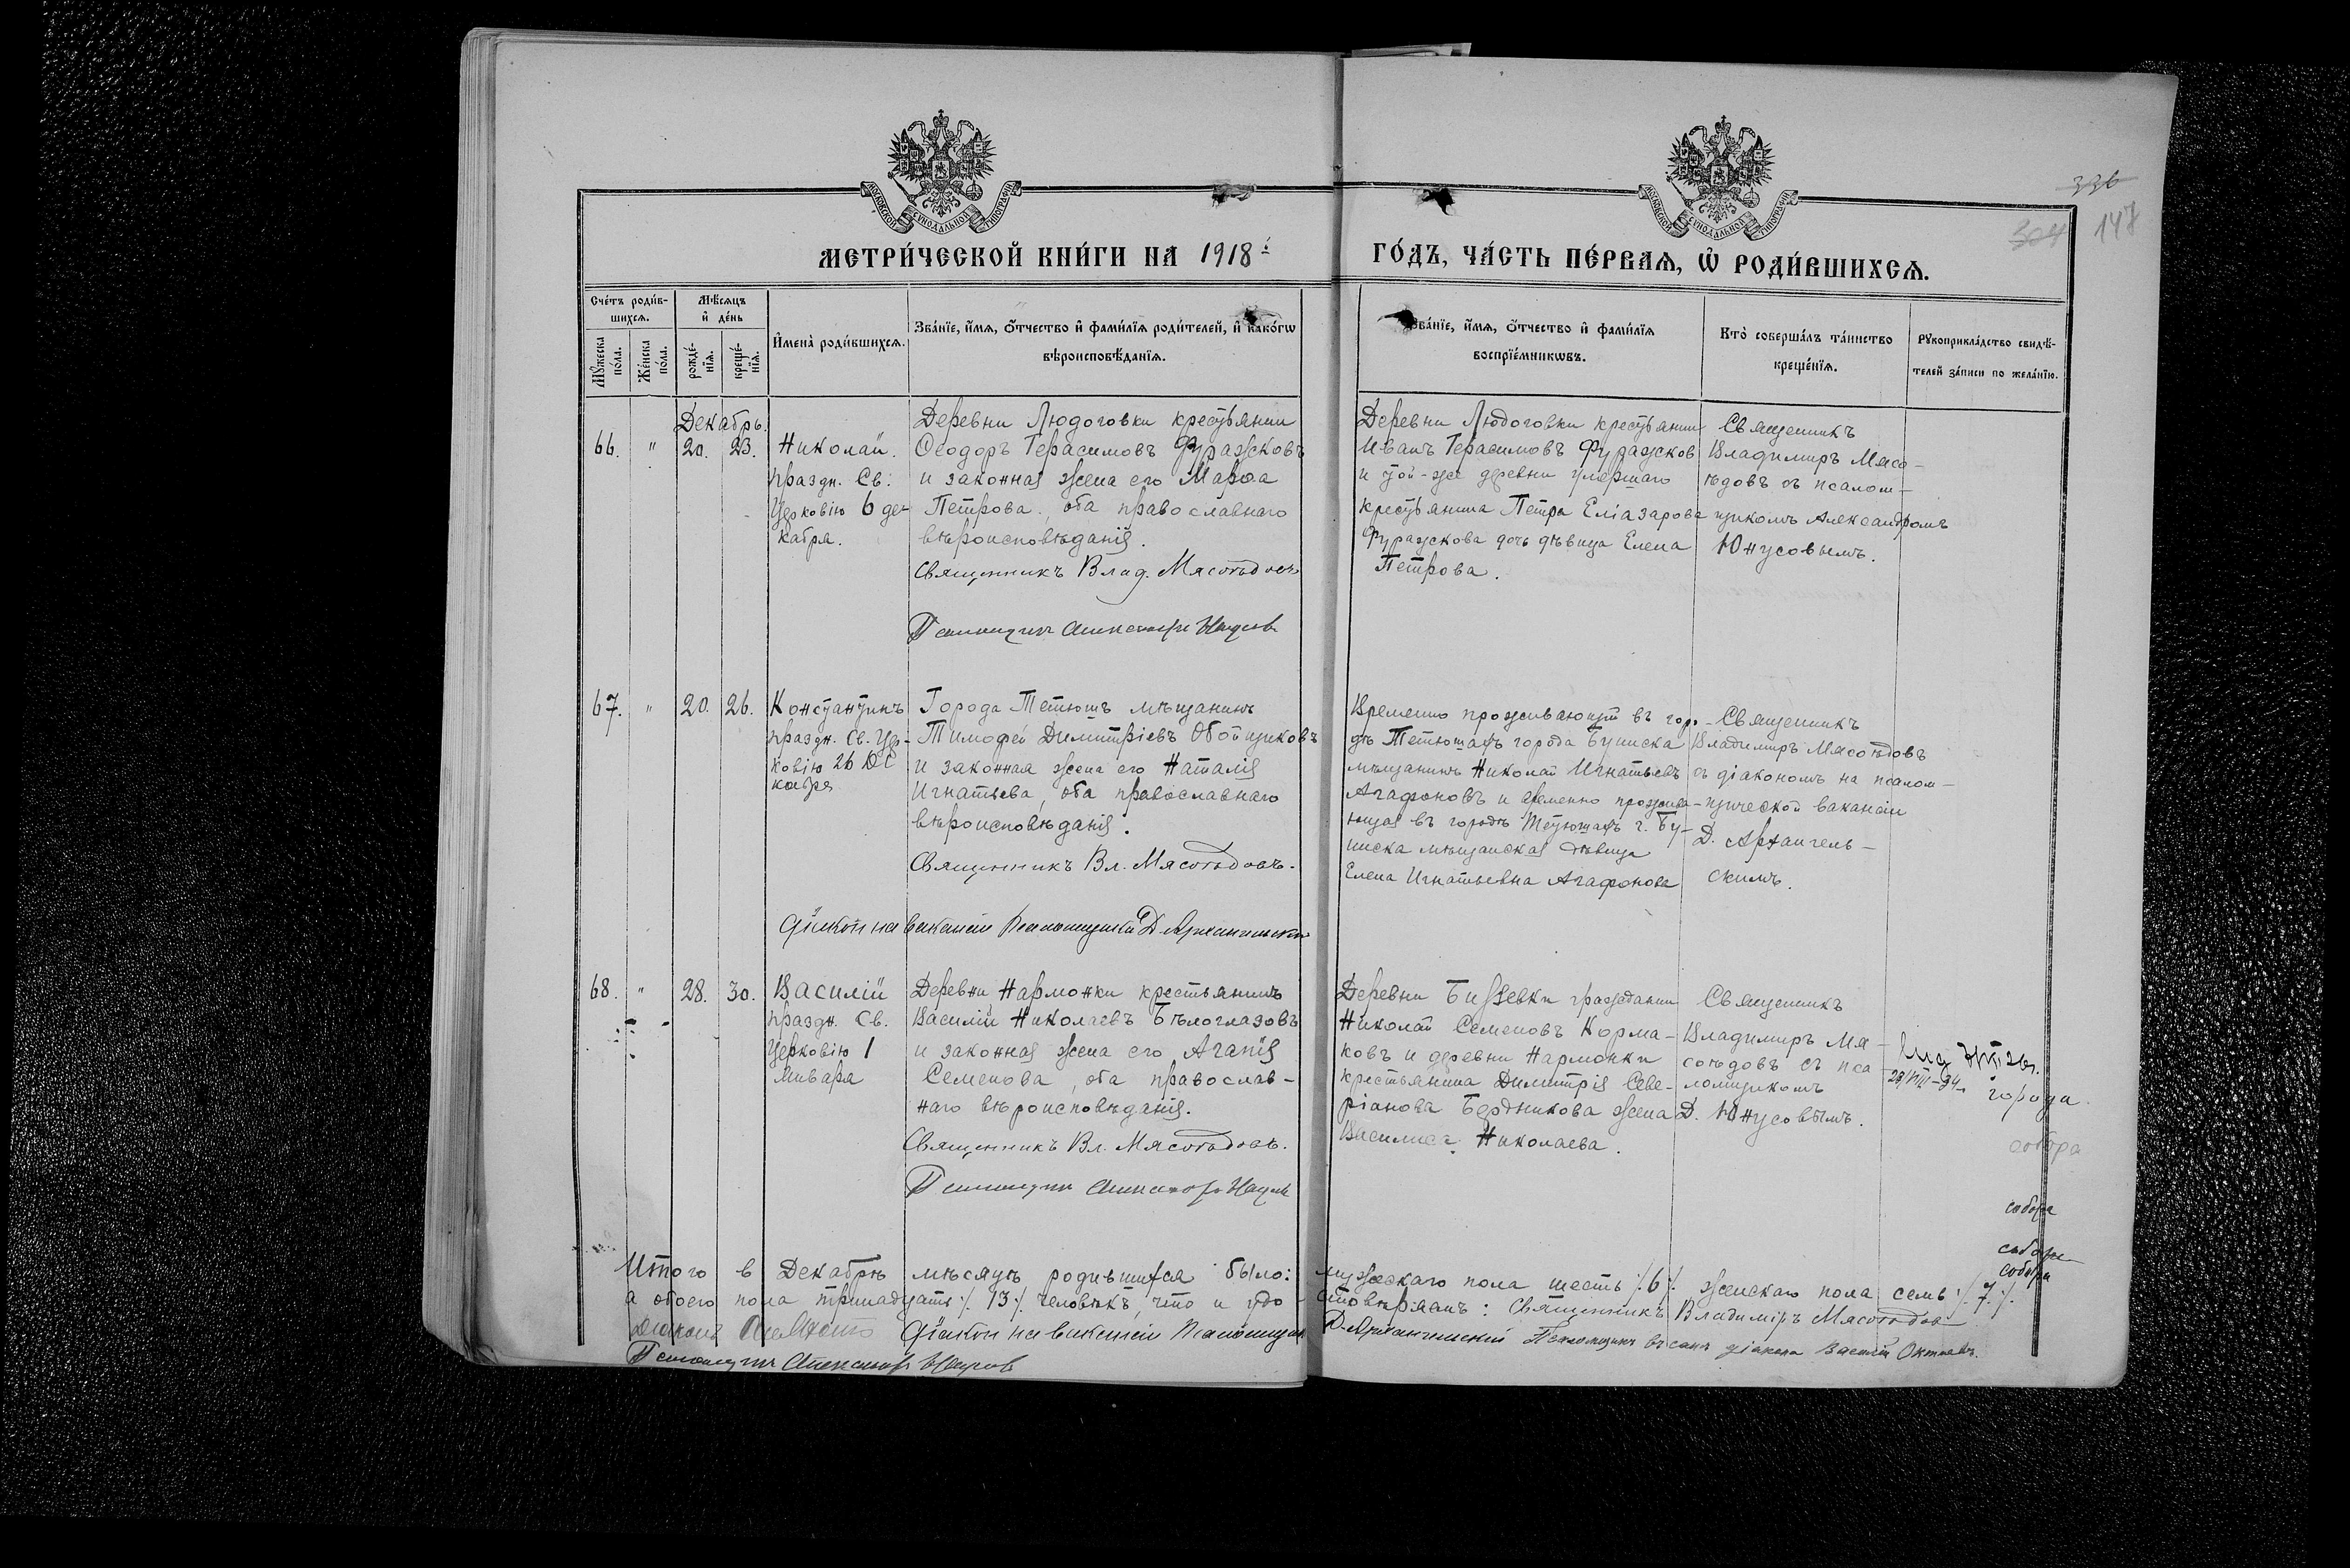 МОСКОВСКОЙ СѴНОДАЛЬНОЙ ТИПОГРАФІИ
МОСКОВСКОЙ СѴНОДАЛЬНОЙ ТИПОГРАФІИ
336
304
147
МЕТРИ́ЧЕСКОЙ КНИ́ГИ НА 1918 й
ГО́ДЪ, ЧА́СТЬ ПЕ́РВАѦ, Ѡ҆ РОДИ́ВШИХСѦ.
Сче́тъ роди́в-
шихсѧ.
Мꙋ́жеска по́ла.
Же́нска по́ла.
Мѣ́сѧцъ
и҆ де́нь
рожде́-нїѧ.
креще́-нїѧ.
И҆мена̀ роди́вшихсѧ.
Зва́нїе, и҆́мѧ, ѻ҆́тчество и҆ фами́лїѧ роди́телей, и҆ како́гѡ
вѣроисповѣ́данїѧ.
Зва́нїе, и҆́мѧ, ѻ҆́тчество и҆ фами́лїѧ
воспрїе́мникѡвъ.
Кто̀ соверша́лъ та́инство
креще́нїѧ.
Рꙋкоприкла́дство свидѣ́-
телей за́писи по жела́нїю.
Декабрь.
66. " 20. 23.
Николай.
праздн. Св.
Церковію 6 де-
кабря.
Деревни Людоговки крестьянин
Ѳеодоръ Герасимовъ Фуражковъ
и законная жена его Марѳа
Петрова, оба православнаго
вѣроисповѣданія.
Священникъ Влад. Мясоѣдовъ
Псаломщикъ Александръ Юнусовъ
Деревни Людоговки крестьянин
Иванъ Герасимовъ Фуражков
и той-же деревни умершаго
крестьянина Петра Еліазарова
Фуражкова дочь дѣвица Елена
Петрова.
Священникъ
Владимиръ Мясо-
ѣдовъ съ псалом-
щикомъ Александромъ
Юнусовымъ.
67. " 20. 26.
Константинъ
праздн. Св. Цер-
ковію 26 Де
кабря
Города Тетюшъ мѣщанинъ
Тимофей Димитріевъ Обойщиковъ
и законная жена его Наталія
Игнатьева, оба православнаго
вѣроисповѣданія.
Священникъ Вл. Мясоѣдовъ.
Діаконъ на вакансіи Псаломщика Д. Архангельскій
Временно проживающій въ горо-
дѣ Тетюшахъ города Буинска
мѣщанинъ Николай Игнатьевъ
Агафоновъ и временно прожива-
ющая въ городѣ Тетюшахъ г. Бу-
инска мѣщанская дѣвица
Елена Игнатьевна Агафонова
Священникъ
Владимиръ Мясоѣдовъ
съ діакономъ на псалом-
щической вакансіи
Д. Архангель-
скимъ.
68. " 28. 30.
Василій
праздн. Св.
Церковію 1
Января
Деревни Нармонки крестьянинъ
Василій Николаевъ Бѣлоглазовъ
и законная жена его Агапія
Семенова, оба православ-
наго вѣроисповѣданія.
Священникъ Вл. Мясоѣдовъ.
Псаломщикъ Александръ Юнусовъ
Деревни гражданин
Николай Семеновъ Корма-
ковъ и деревни Нармонки
крестьянина Димитрія Севе-
ріанова Бердникова жена
Василиса Николаева.
Священникъ
Владимиръ Мя-
соѣдовъ съ пса
ломщикомъ
Д. Юнусовымъ.
29/VIII-34
города
собора
собора
собора
собора
Итого в Декабрѣ мѣсяцѣ родившихся было: мужескаго пола шесть ∕.6∕. женскаго пола семь ∕.7∕.
а обоего пола тринадцать ∕.13∕. человѣкъ, что и удо-стовѣряемъ: Священникъ Владиміръ Мясоѣдовъ
Діаконъ Діакон на вакансіи Псаломщика Д. Архангельскій Псаломщикъ въ санѣ діакона Василій
Псаломщикъ Александръ Юнусовъ